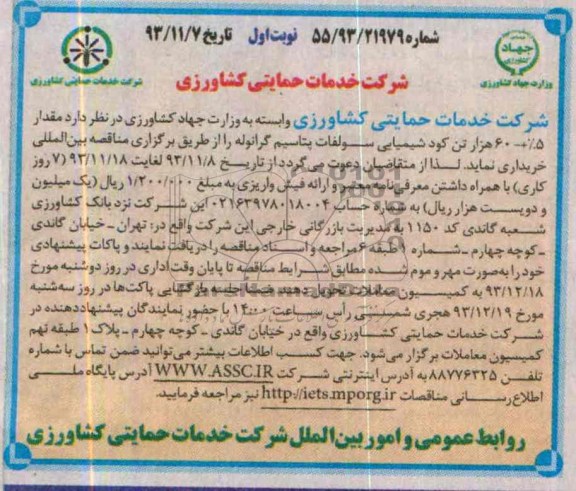 شماره ۵۵/۹۳/۲۱۹۷۹ نوبت اول تاریخ ۹۳/۱۱/۷
جهاد کشاورزی
وزارت جهاد کشاورزی
شرکت خدمات حمایتی کشاورزی
شرکت خدمات حمایتی کشاورزی
شرکت خدمات حمایتی کشاورزی وابسته به وزارت جهاد کشاورزی در نظر دارد مقدار
۵٪+- ۶۰ هزار تن کود شیمیایی سولفات پتاسیم گرانوله را از طریق برگزاری مناقصه بین‌المللی
خریداری نماید. لذا از متقاضیان دعوت می‌گردد از تاریخ ۹۳/۱۱/۸ لغایت ۹۳/۱۱/۱۸ (۷ روز
کاری) با همراه داشتن معرفی‌نامه معتبر و ارائه فیش واریزی به مبلغ ۱/۲۰۰/۰۰۰ ریال (یک میلیون
و دویست هزار ریال) به شماره حساب ۰۲۱۶۳۹۷۸۰۱۸۰۰۴ این شرکت نزد بانک کشاورزی
شعبه گاندی کد ۱۱۵۰ به مدیریت بازرگانی خارجی این شرکت واقع در: تهران - خیابان گاندی
- کوچه چهارم - شماره ۱ طبقه ۶ مراجعه و اسناد مناقصه را دریافت نمایند و پاکات پیشنهادی
خود را به‌صورت مهر و موم شده مطابق شرایط مناقصه تا پایان وقت اداری در روز دوشنبه مورخ
۹۳/۱۲/۱۸ به کمیسیون معاملات تحویل دهند. ضمنا جلسه بازگشایی پاکت‌ها در روز سه‌شنبه
مورخ ۹۳/۱۲/۱۹ هجری شمسی رأس ساعت ۱۴:۰۰ با حضور نمایندگان پیشنهاددهنده در
شرکت خدمات حمایتی کشاورزی واقع در خیابان گاندی - کوچه چهارم - پلاک ۱ طبقه نهم
کمیسیون معاملات برگزار می‌شود. جهت کسب اطلاعات بیشتر می‌توانید ضمن تماس با شماره
تلفن ۸۸۷۷۶۳۲۵ به آدرس اینترنتی شرکت WWW.ASSC.IR آدرس پایگاه ملی
اطلاع‌رسانی مناقصات http://iets.mporg.ir نیز مراجعه فرمایید.
روابط عمومی و امور بین‌الملل شرکت خدمات حمایتی کشاورزی